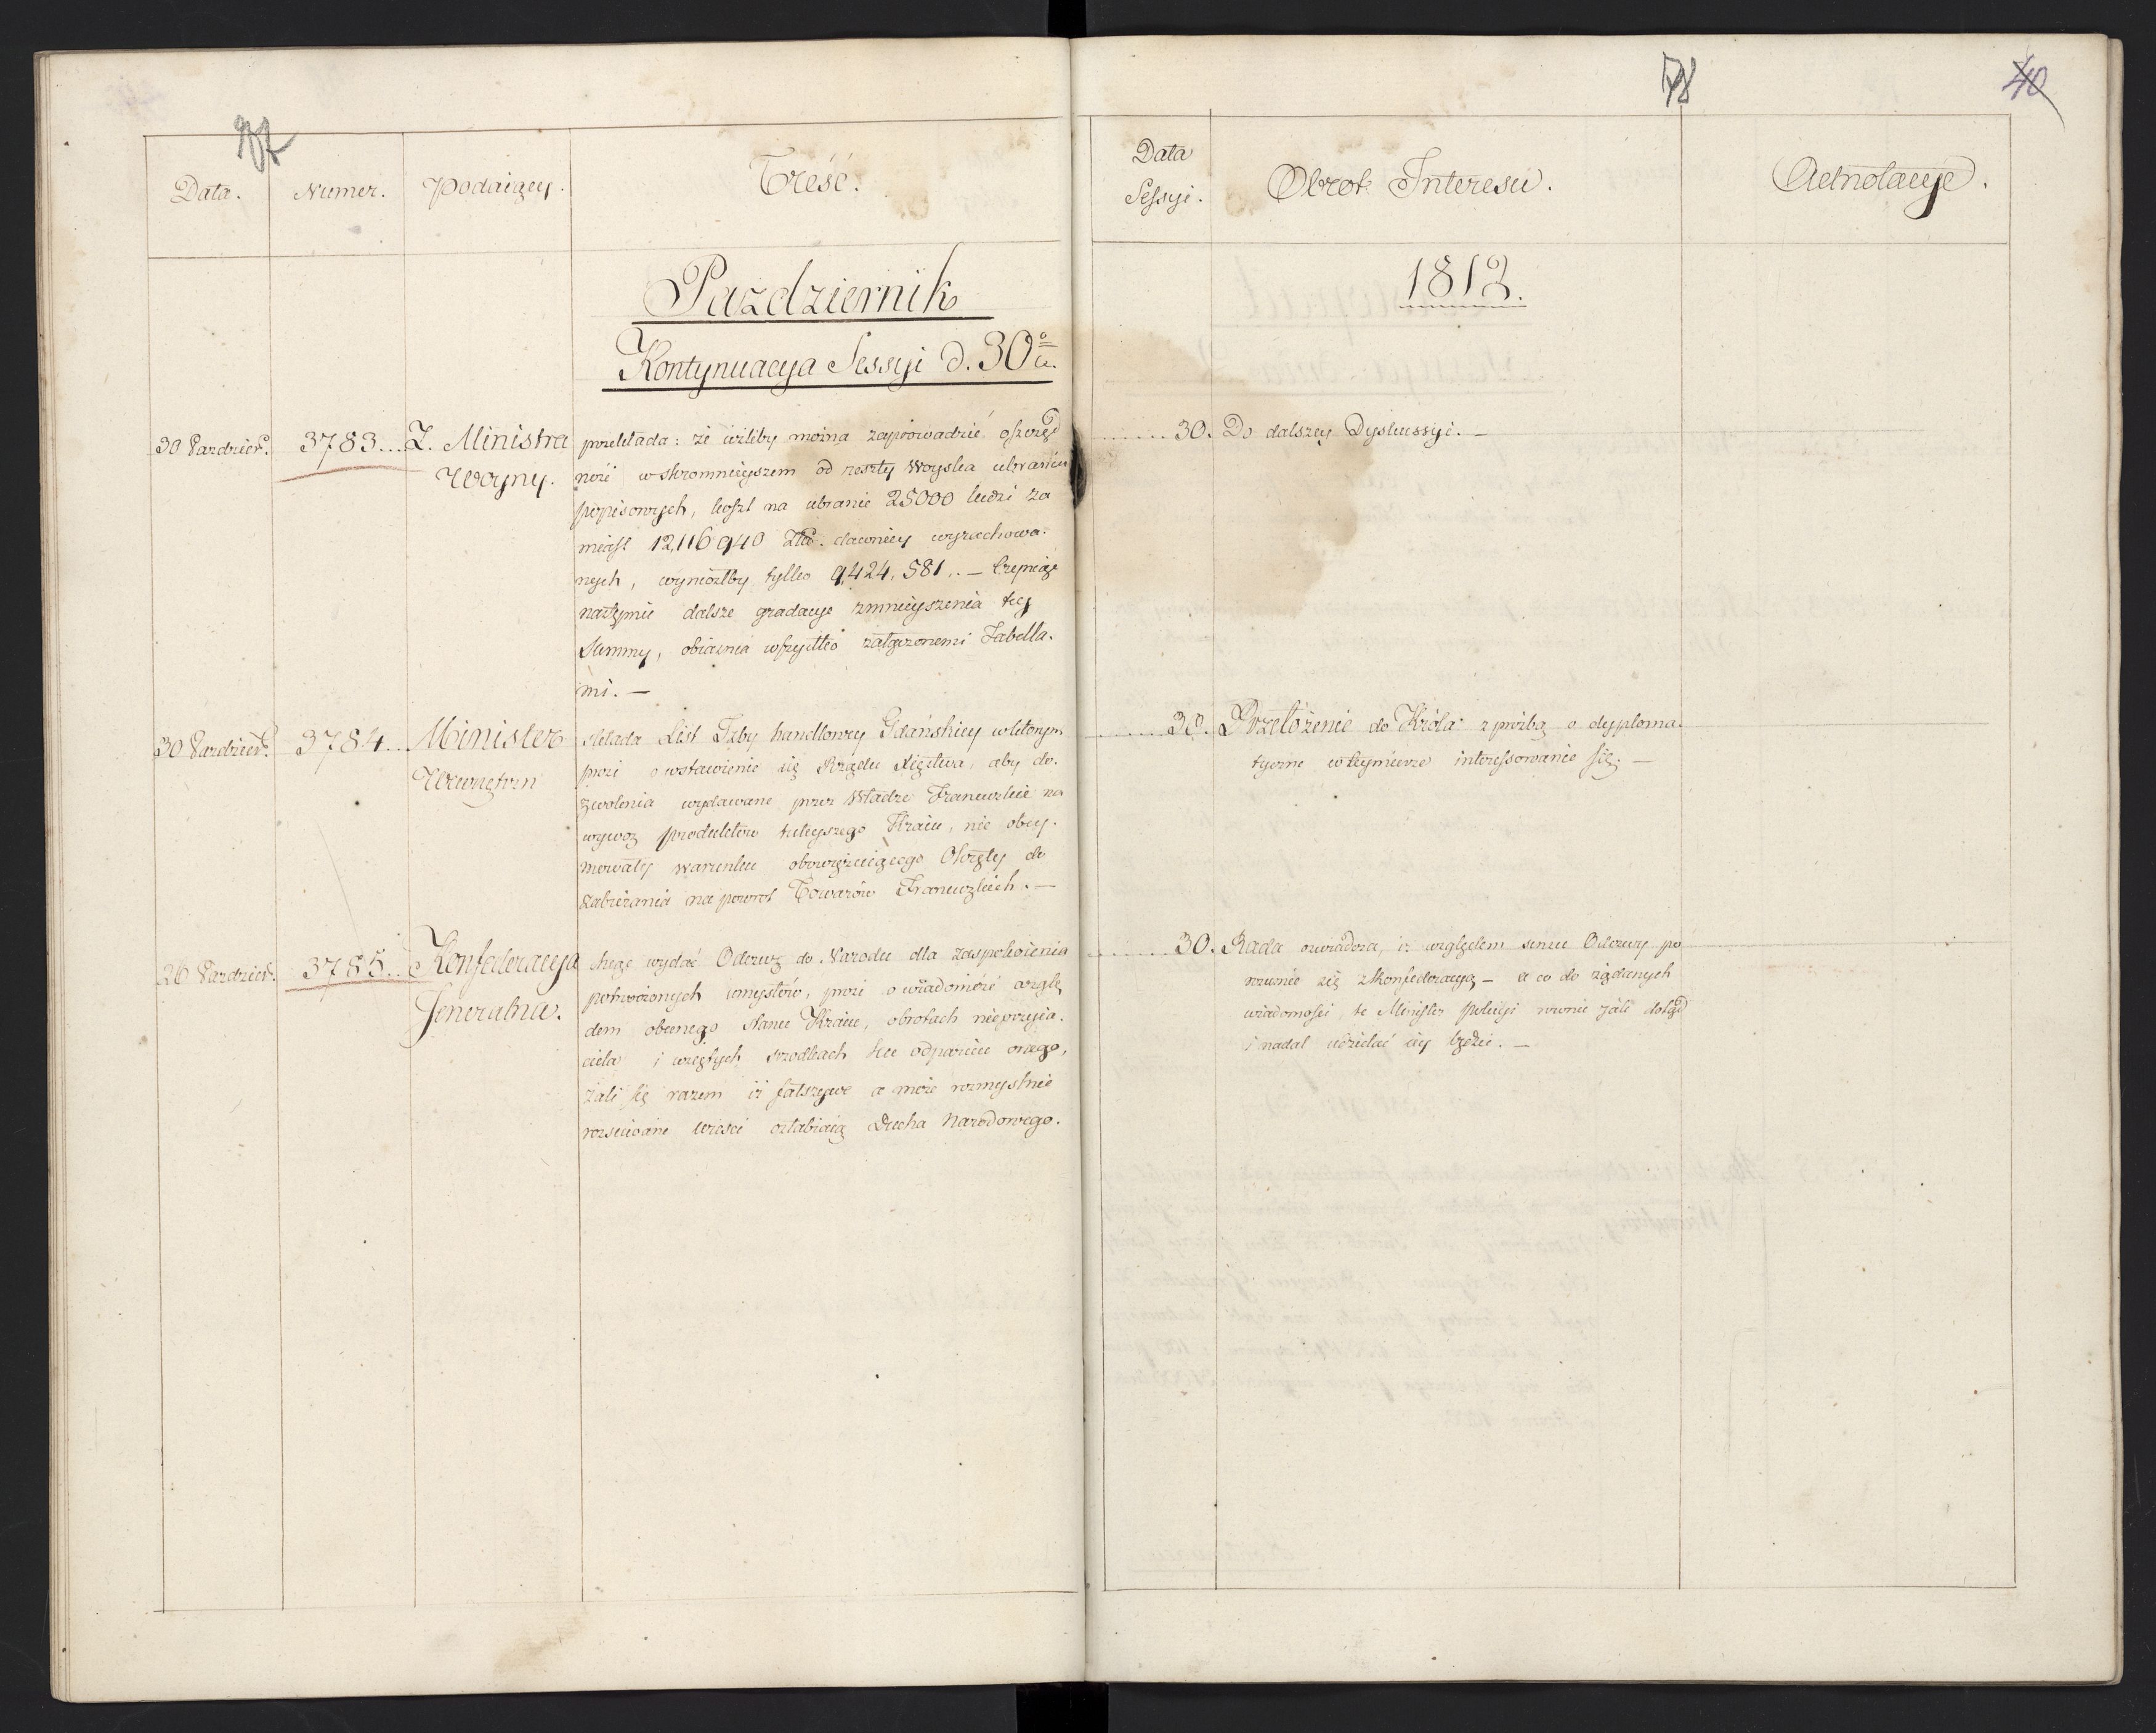 78
40
Data.
Numer.
Podaiący.
Treść.
Data
Sessyi.
Obrot Interesu.
Adnotacyje.
Pazdziernik
1812.
Kontynuacya Sessyi d. 30º
30 Pazdzier. 3783... Z. Ministra
Woyny.
przekłada: że iżliby można zaprowadzić oszczęd
ność w skromnieyszem od reszty Woyska ubraniu
popisowych, koszt na ubranie 25000 ludzi za
miast 12,116940 Złł. dawniey wyrachowa-
nych, wyniosłby tylko 9,424,581.. — Czyniąc
następnie dalsze gradacye zmnieyszenia tey
Summy, obiaśnia wszystko załączonemi Tabella-
mi. —
30. Do dalszey Dyskussyi. —
30 Pazdzier. 3784.. Minister
Wewnętrzn
składa List Izby handlowey Gdańskiey w którym
prosi o wstawienie się Rządu Xięstwa, aby do-
zwolenia wydawane przez Władze Francuzkie na
wywoz produktów tuteyszego Kraiu, nie obey-
mowały warunku obowięzuiącego Okręty do
zabierania na powrot Towarów Francuzkich. —
30. Przełożenie do Króla z prośbą o dyploma-
tyczne w tey mierze interessowanie się. —
26 Pazdzier. 3785.. Konfederacya
Jeneralna.
chcąc wydać Odezwę do Narodu dla zaspokoienia
potrwożonych umysłów, prosi o wiadomość wzglę
dem obecnego stanu Kraiu, obrotach nieprzyia-
ciela i wziętych srodkach ku odparciu onego,
żali się razem iż fałszywe a może rozmyslnie
rozsiewane wiesci osłabiaią Ducha Narodowego.
30. Rada oswiadcza, iż względem sensu Odezwy po
rozumie się z Konfederacyą — a co do żądanych
wiadomosci, te Minister Policyi rownie jak dotąd
i nadal udzielać iey będzie. —